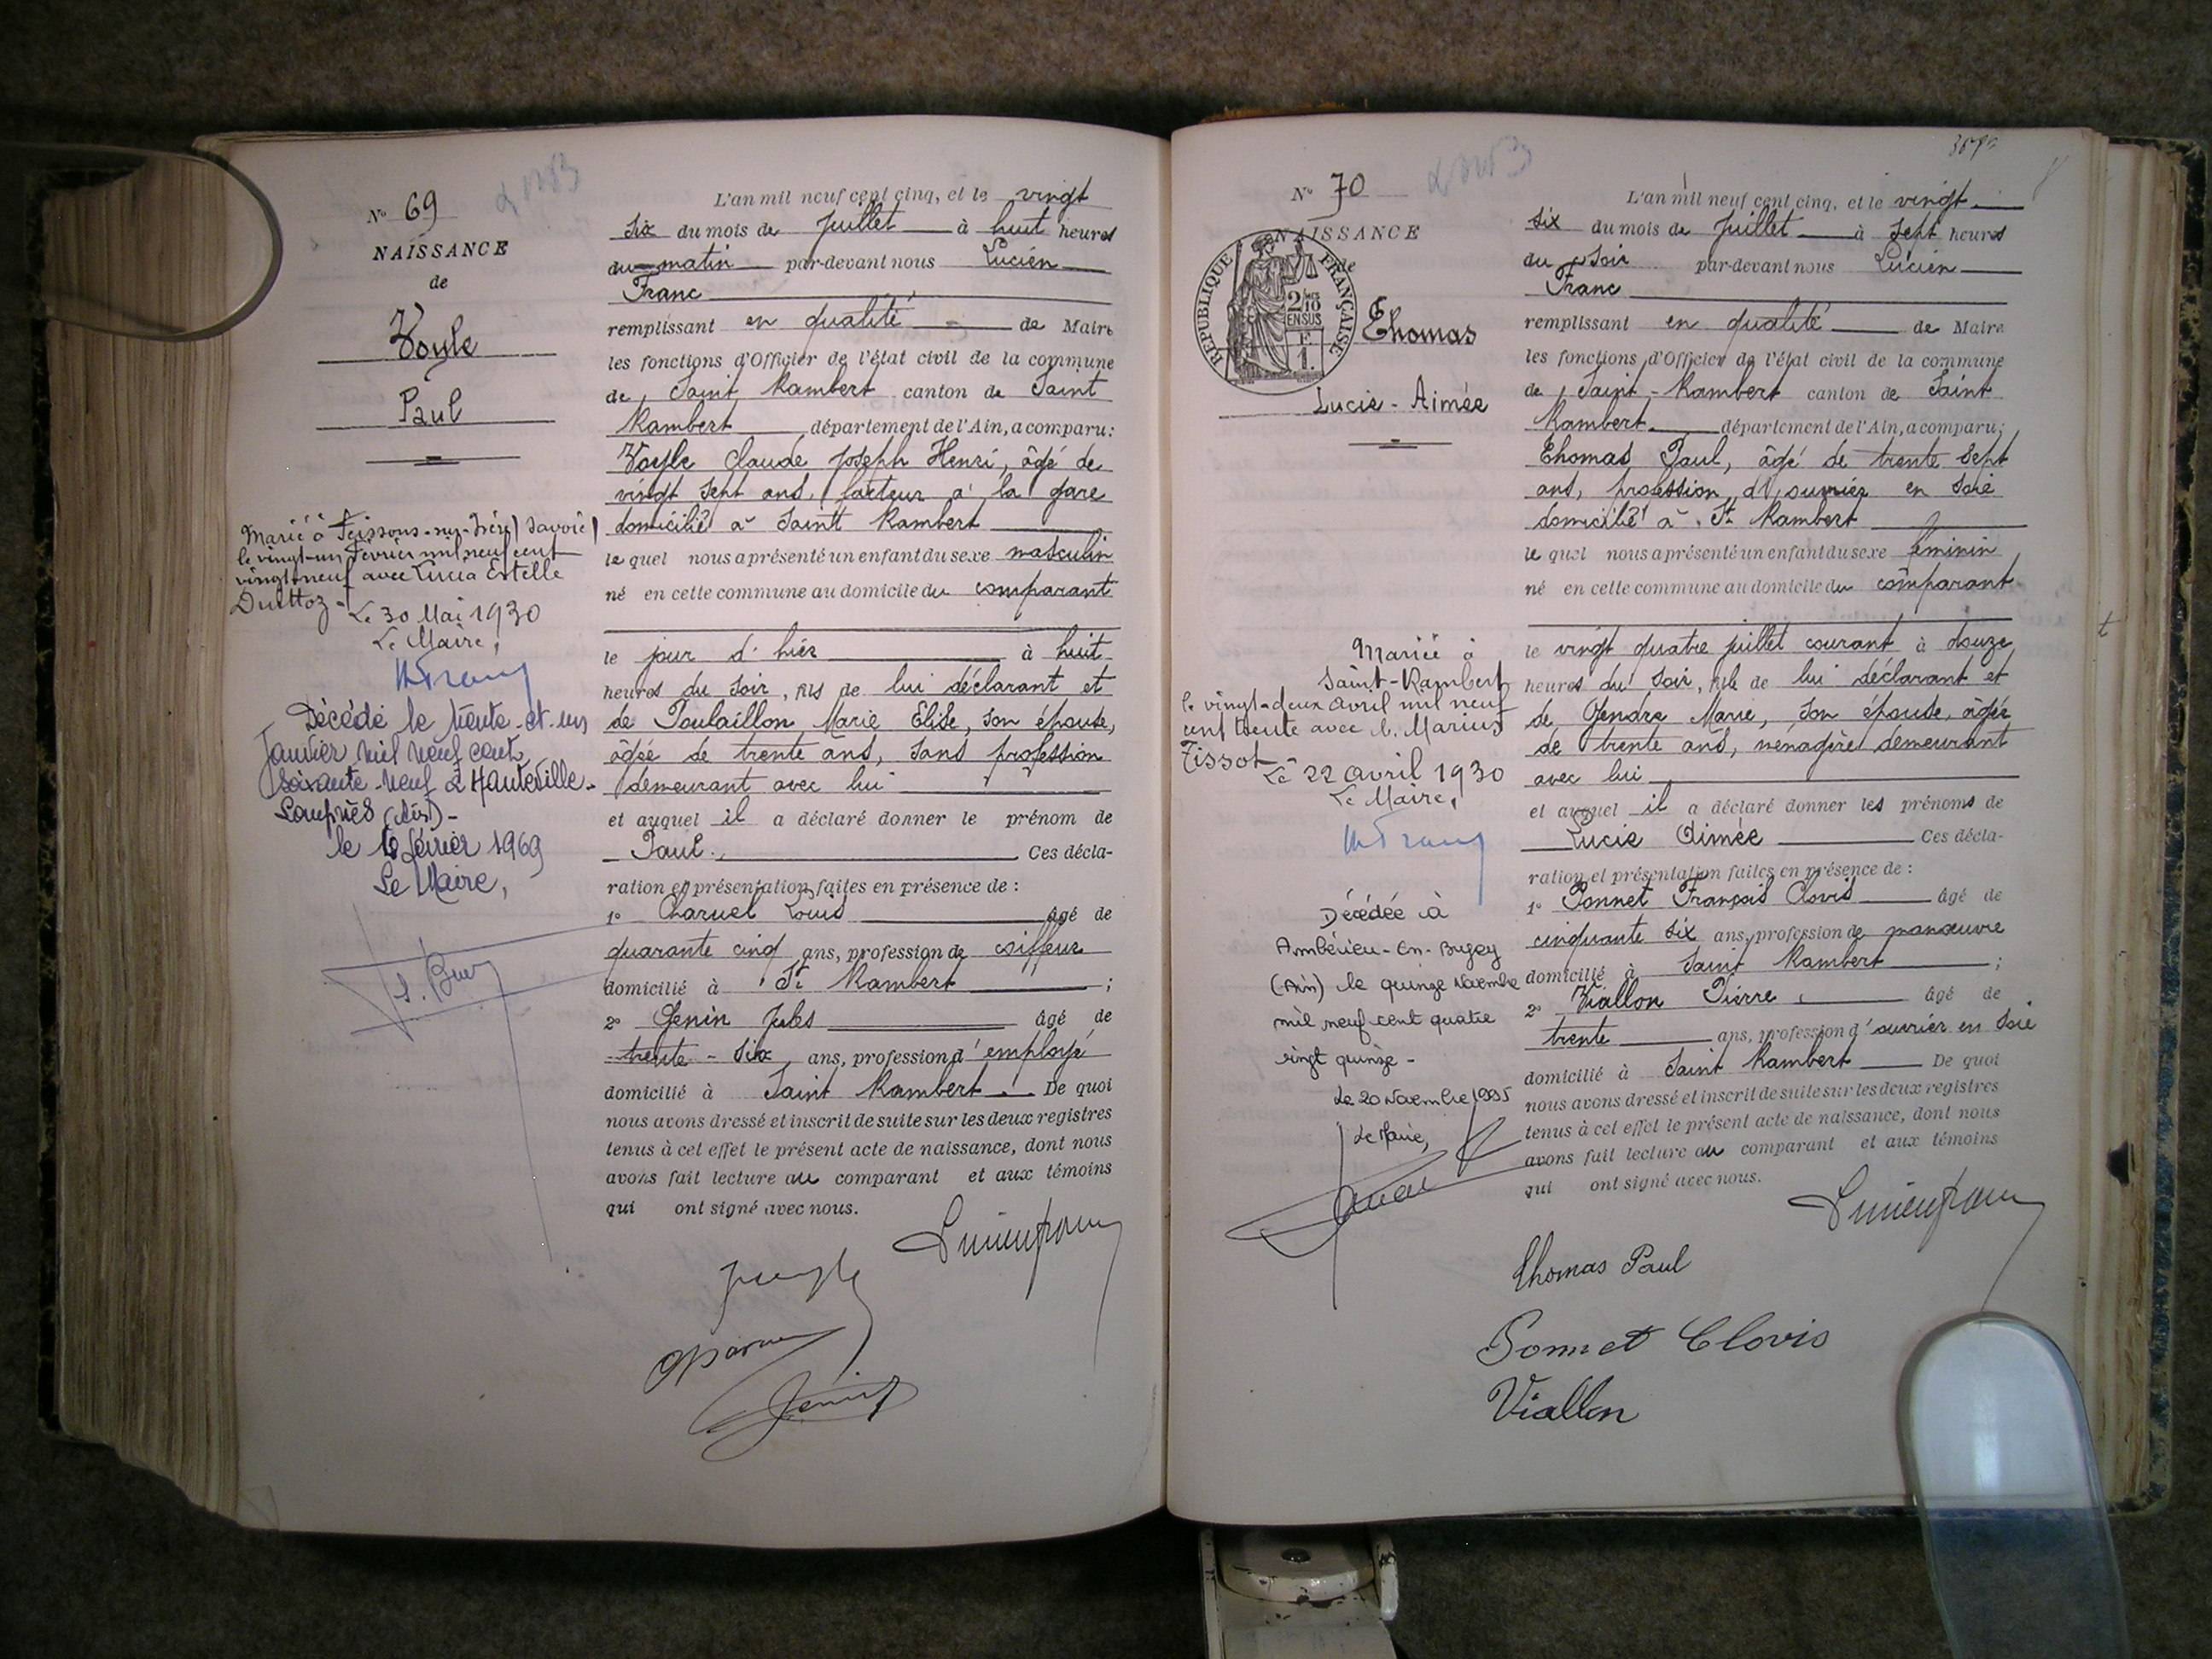 N° 69
NAISSANCE
de
Voyle
Paul
Marié à Feissons-sur-Isère (Savoie)
le vingt-un février mil neuf cent
vingt-neuf avec Lucia Estelle
Le 30 Mai 1930
Le Maire,
Décédé le trente-et-un
Janvier mil neuf cent
soixante-neuf à Hauteville-
Lompnès (Ain)-
le février 1969
Le Maire,
L'an mil neuf cent cinq, et le vingt
six du mois de Juillet à huit heures
du matin par-devant nous Lucien
Franc
remplissant en qualité de Maire
les fonctions d'Officier de l'état civil de la commune
de Saint Rambert canton de Saint
Rambert département de l'Ain, a comparu:
Voyle Claude Joseph Henri, âgé de
vingt sept ans, facteur à la gare
domicilié à Saint Rambert
le quel nous a présenté un enfant du sexe masculin
né en cette commune au domicile du comparant
le jour d'hier à huit
heures du soir, fils de lui déclarant et
de Poulaillon Marie Elise, son épouse,
âgée de trente ans, sans profession
demeurant avec lui
et auquel il a déclaré donner le prénom de
Paul. Ces décla-
ration et présentation faites en présence de :
1° Charvel Louis âgé de
quarante cinq ans, profession de coiffeur
domicilié à St Rambert ;
2° Genin Jules âgé de
trente-six ans, profession d'employé
domicilié à Saint Rambert. De quoi
nous avons dressé et inscrit de suite sur les deux registres
tenus à cet effet le présent acte de naissance, dont nous
avons fait lecture au comparant et aux témoins
qui ont signé avec nous.
Genin
N° 70
NAISSANCE
de
REPUBLIQUE FRANÇAISE
2/10
EN SUS
1 F.
Thomas
Lucie-Aimée
Mariée à
Saint-Rambert
le vingt-deux avril mil neuf
cent trente avec M. Marius
Tissot
Le 22 avril 1930
Le Maire,
Décédée à
Ambérieu-en-Bugey
(Ain) le quinze novembre
mil neuf cent quatre
vingt quinze-
Le 20 Novembre 1995
Le Maire,
L'an mil neuf cent cinq, et le vingt
six du mois de Juillet à sept heures
du soir par-devant nous Lucien
Franc
remplissant en qualité de Maire
les fonctions d'Officier de l'état civil de la commune
de Saint-Rambert canton de Saint
Rambert département de l'Ain, a comparu:
Thomas Paul, âgé de trente sept
ans, profession d'ouvrier en soie
domicilié à St Rambert
le quel nous a présenté un enfant du sexe féminin
né en cette commune au domicile du comparant
le vingt quatre juillet courant à douze
heures du soir, fille de lui déclarant et
de Gendre Marie, son épouse, âgée
de trente ans, ménagère demeurant
avec lui
et auquel il a déclaré donner les prénoms de
Lucie Aimée Ces décla-
ration et présentation faites en présence de :
1° Ponnet François Clovis âgé de
cinquante six ans, profession de manœuvre
domicilié à Saint Rambert ;
2° Viallon Pierre, âgé de
trente ans, profession d'ouvrier en soie
domicilié à Saint Rambert De quoi
nous avons dressé et inscrit de suite sur les deux registres
tenus à cet effet le présent acte de naissance, dont nous
avons fait lecture au comparant et aux témoins
qui ont signé avec nous.
Thomas Paul
Ponnet Clovis
Viallon